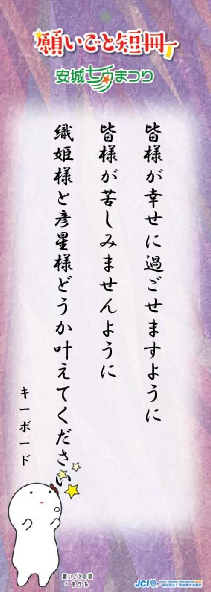 願いごと短冊
安城七夕まつり
皆様が幸せに過ごせますように
皆様が苦しみませんように
織姫様と彦星様どうか叶えてください
キーボード
JCI